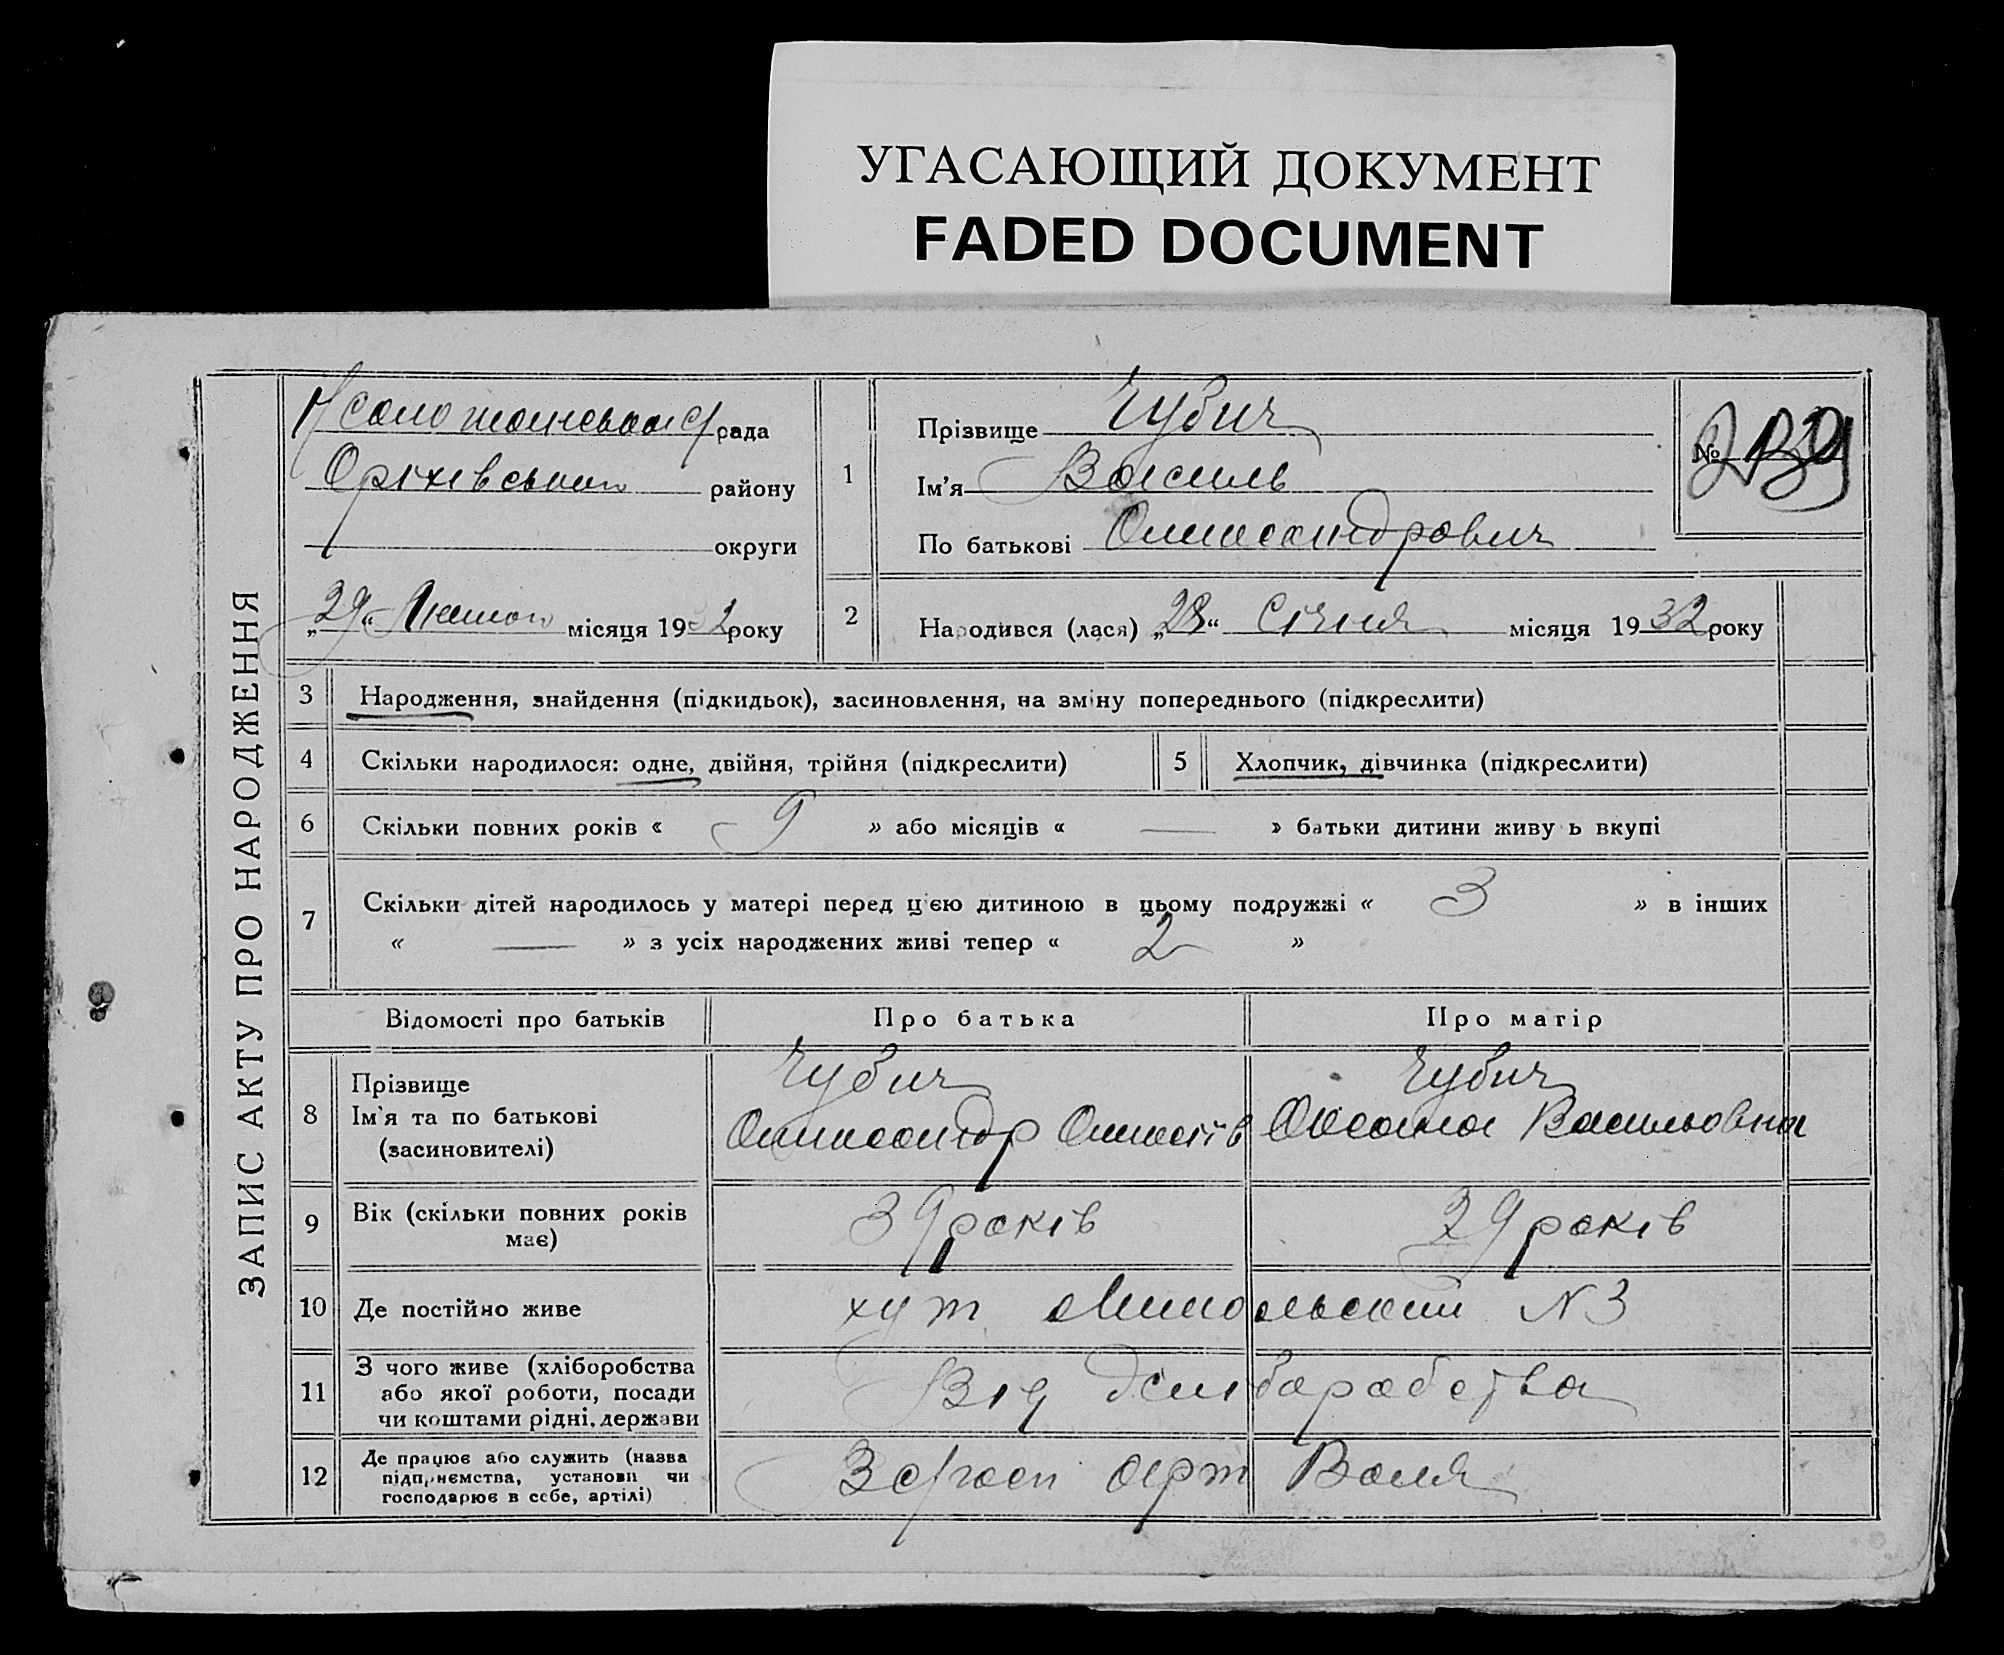 УГАСАЮЩИЙ ДОКУМЕНТ
FADED DOCUMENT
ЗАПИС АКТУ ПРО НАРОДЖЕННЯ
рада
Оріхівського району
округи
„29“ Лютого місяця 1932 року
1
Прізвище Чубич
Ім'я Василь
По батькові Олександрович
№
2
Народився (лася) „28“ Січня місяця 1932 року
3 Народження, знайдення (підкидьок), засиновлення, на зміну попереднього (підкреслити)
4 Скільки народилося: одне, двійня, трійня (підкреслити)
5 Хлопчик, дівчинка (підкреслити)
6 Скільки повних років « 9 » або місяців « — » батьки дитини живу ь вкупі
7 Скільки дітей народилось у матері перед цією дитиною в цьому подружжі « 3 » в інших
« — » з усіх народжених живі тепер « 2 »
Відомості про батьків Про батька Про матір
8 Прізвище
Ім'я та по батькові
(засиновителі)
Чубич
Олександр
Чубич
Оксана Васильовна
9 Вік (скільки повних років
має)
39 років
29 років
10 Де постійно живе
хут. №3
11 З чого живе (хліборобства
або якої роботи, посади
чи коштами рідні, держави
Від хліборобства
12 Де працює або служить (назва
підприємства, установи чи
господарює в себе, артілі)
арт Воля